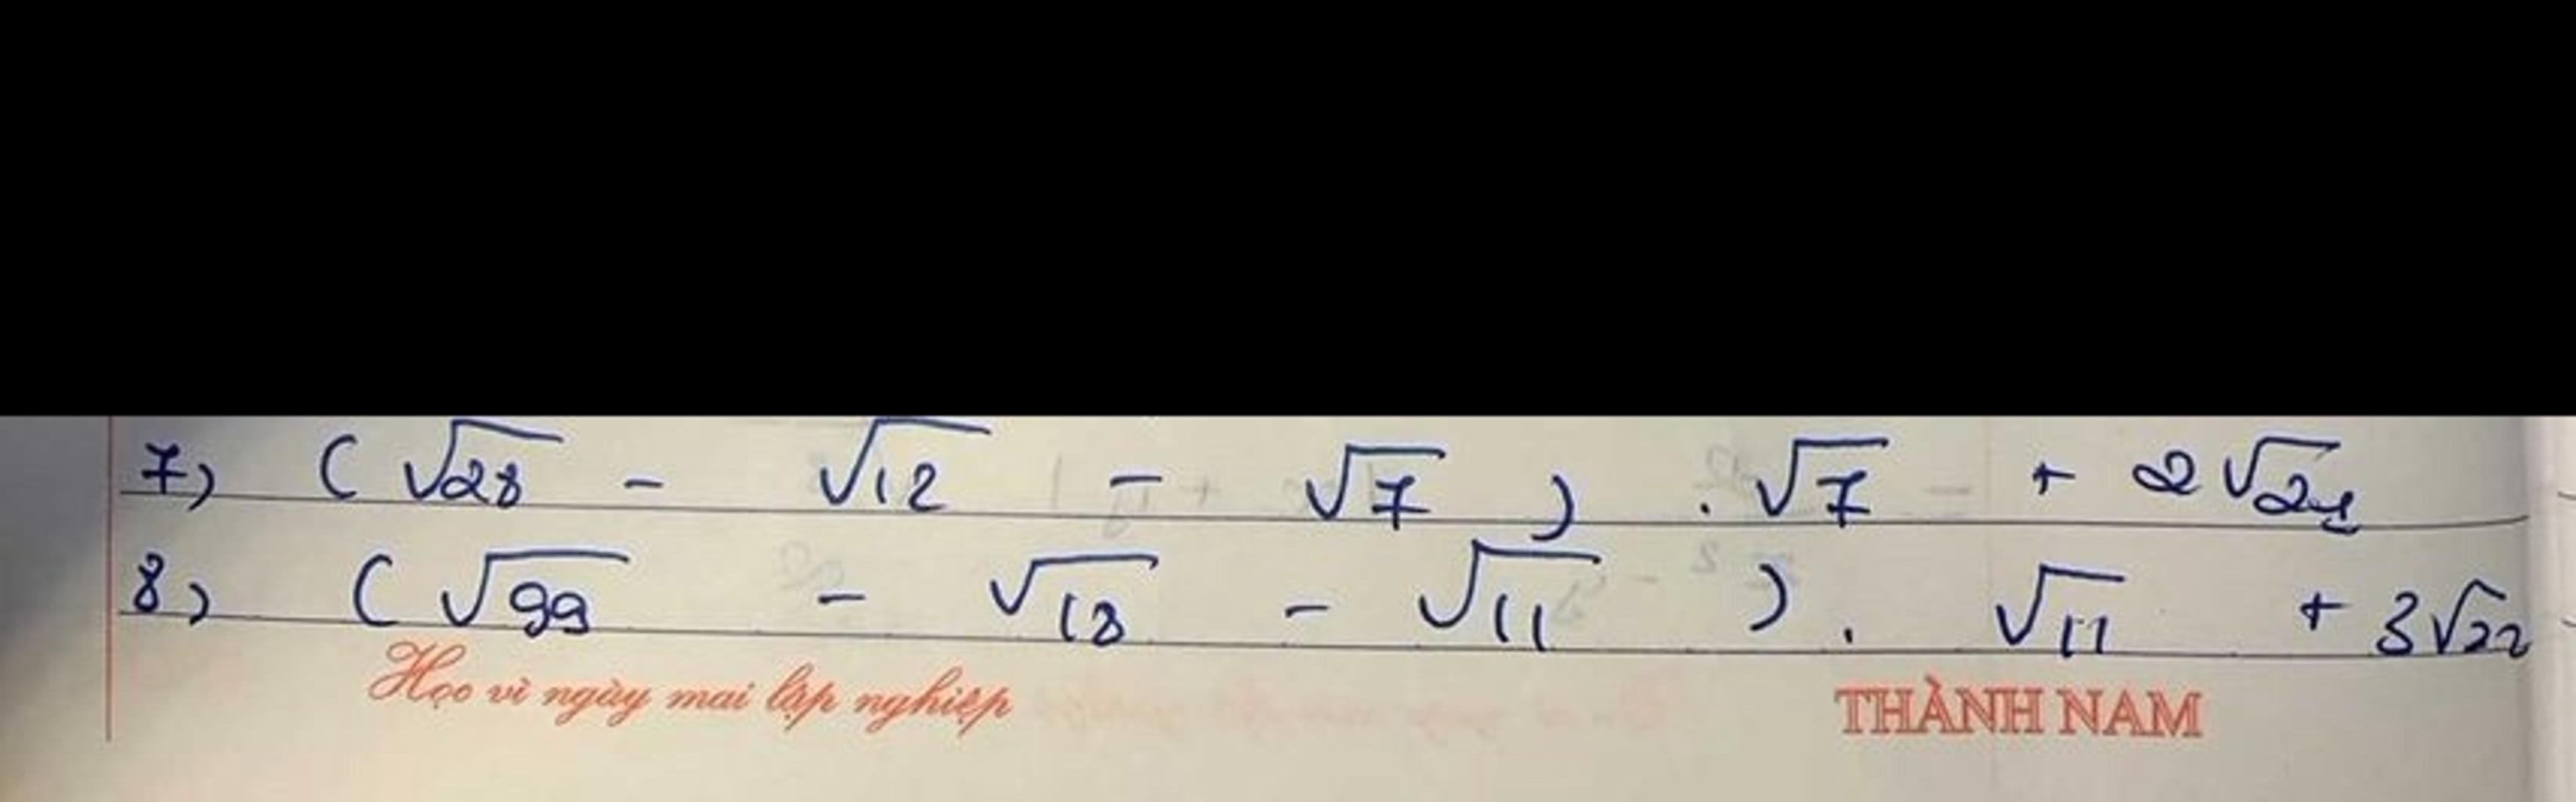 7) (√28 - √12 - √7) . √7 + 2√21
8) (√99 - √18 - √11) . √11 + 3√22
Học vì ngày mai lập nghiệp THÀNH NAM